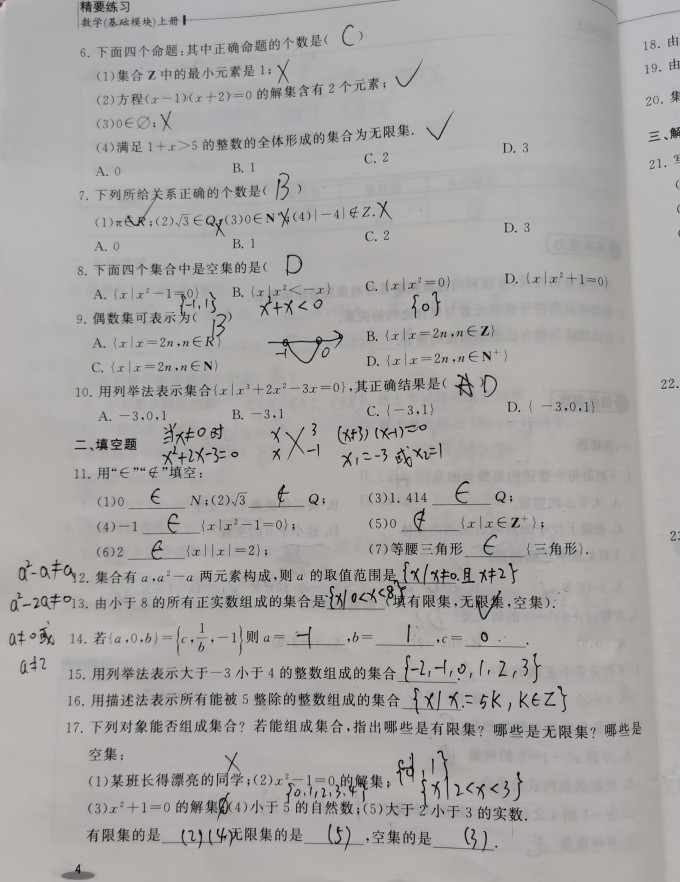 精要练习
数学(基础模块)上册
6. 下面四个命题;其中正确命题的个数是( C )
(1)集合 Z 中的最小元素是 1; X
(2)方程(x−1)(x+2)=0 的解集含有 2 个元素; ✓
(3)0∈∅; X
(4)满足 1+x>5 的整数的全体形成的集合为无限集. ✓
A. 0 B. 1 C. 2 D. 3
7. 下列所给关系正确的个数是( B )
(1)π∈R;(2)√3∈Q;(3)0∈N*;(4)|−4|∉Z. X
A. 0 B. 1 C. 2 D. 3
8. 下面四个集合中是空集的是( D
A. {x|x²−1=0} B. {x|x²<−x} C. {x|x²=0} D. {x|x²+1=0}
{-1,1} x²+x<0 {0}
9. 偶数集可表示为( B )
A. {x|x=2n,n∈R} B. {x|x=2n,n∈Z}
-1 0
C. {x|x=2n,n∈N} D. {x|x=2n,n∈N⁺}
10. 用列举法表示集合{x|x³+2x²−3x=0},其正确结果是( D
A. −3,0,1 B. −3,1 C. {−3,1} D. {−3,0,1}
二、填空题
当x≠0时 x 3 (x+3)(x-1)=0
x²+2x-3=0 x -1 x₁=-3 或 x₂=1
11. 用“∈”“∉”填空:
(1)0 ∈ N;(2)√3 ∉ Q; (3)1.414 ∈ Q;
(4)−1 ∈ {x|x²−1=0}; (5)0 ∉ {x|x∈Z⁺};
(6)2 ∈ {x||x|=2}; (7)等腰三角形 ∈ {三角形}.
a²-a≠a
12. 集合有 a,a²−a 两元素构成,则 a 的取值范围是 {x|x≠0.且x≠2}
a²-2a≠0
13. 由小于 8 的所有正实数组成的集合是 {x|0<x<8} (填有限集,无限集,空集).
a≠0或
a≠2
14. 若{a,0,b}={c,1/b,−1}则 a= -1 ,b= 1 ,c= 0 .
15. 用列举法表示大于−3 小于 4 的整数组成的集合 {-2,-1,0,1,2,3}
16. 用描述法表示所有能被 5 整除的整数组成的集合 {x|x=5k,k∈Z}
17. 下列对象能否组成集合? 若能组成集合,指出哪些是有限集? 哪些是无限集? 哪些是
空集:
(1)某班长得漂亮的同学;(2)x²−1=0的解集; {-1,1}
X {0,1,2,3,4} {x|2<x<3}
(3)x²+1=0 的解集;(4)小于 5 的自然数;(5)大于 2 小于 3 的实数.
有限集的是 (2)(4) 无限集的是 (5) ,空集的是 (3) .
4
18. 由
19. 由
20. 集
三、解
21. 写
22.